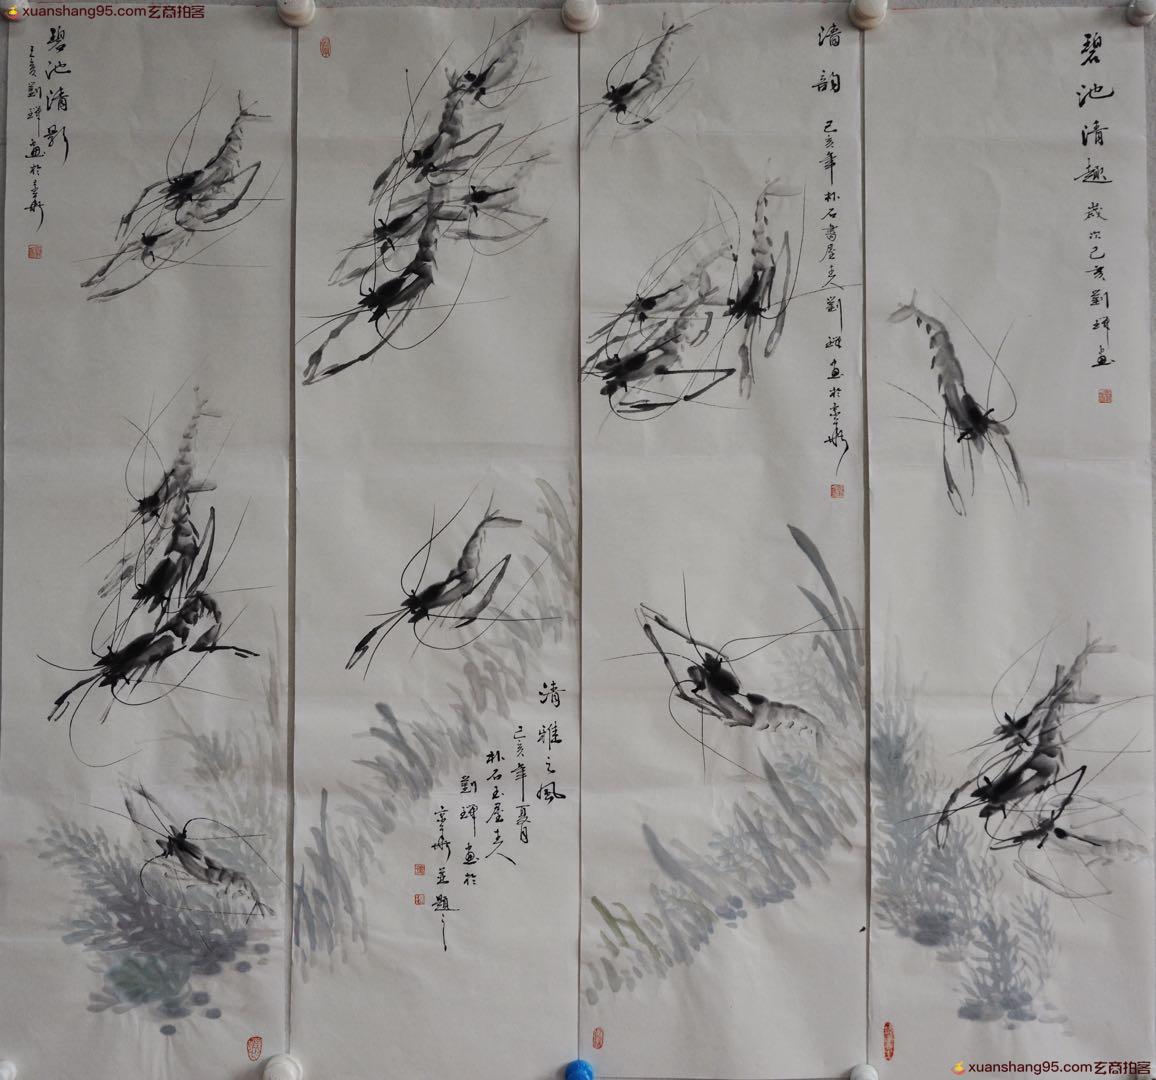 xuanshang95.com玄商拍客
碧池清趣
歲次己亥劉 画
清韵
己亥年 朴石書屋主人劉 画於京華
清雅之風
己亥年夏月
朴石書屋主人
劉 画於
京華並題之
碧池清影
己亥劉 画於京華
xuanshang95.com玄商拍客